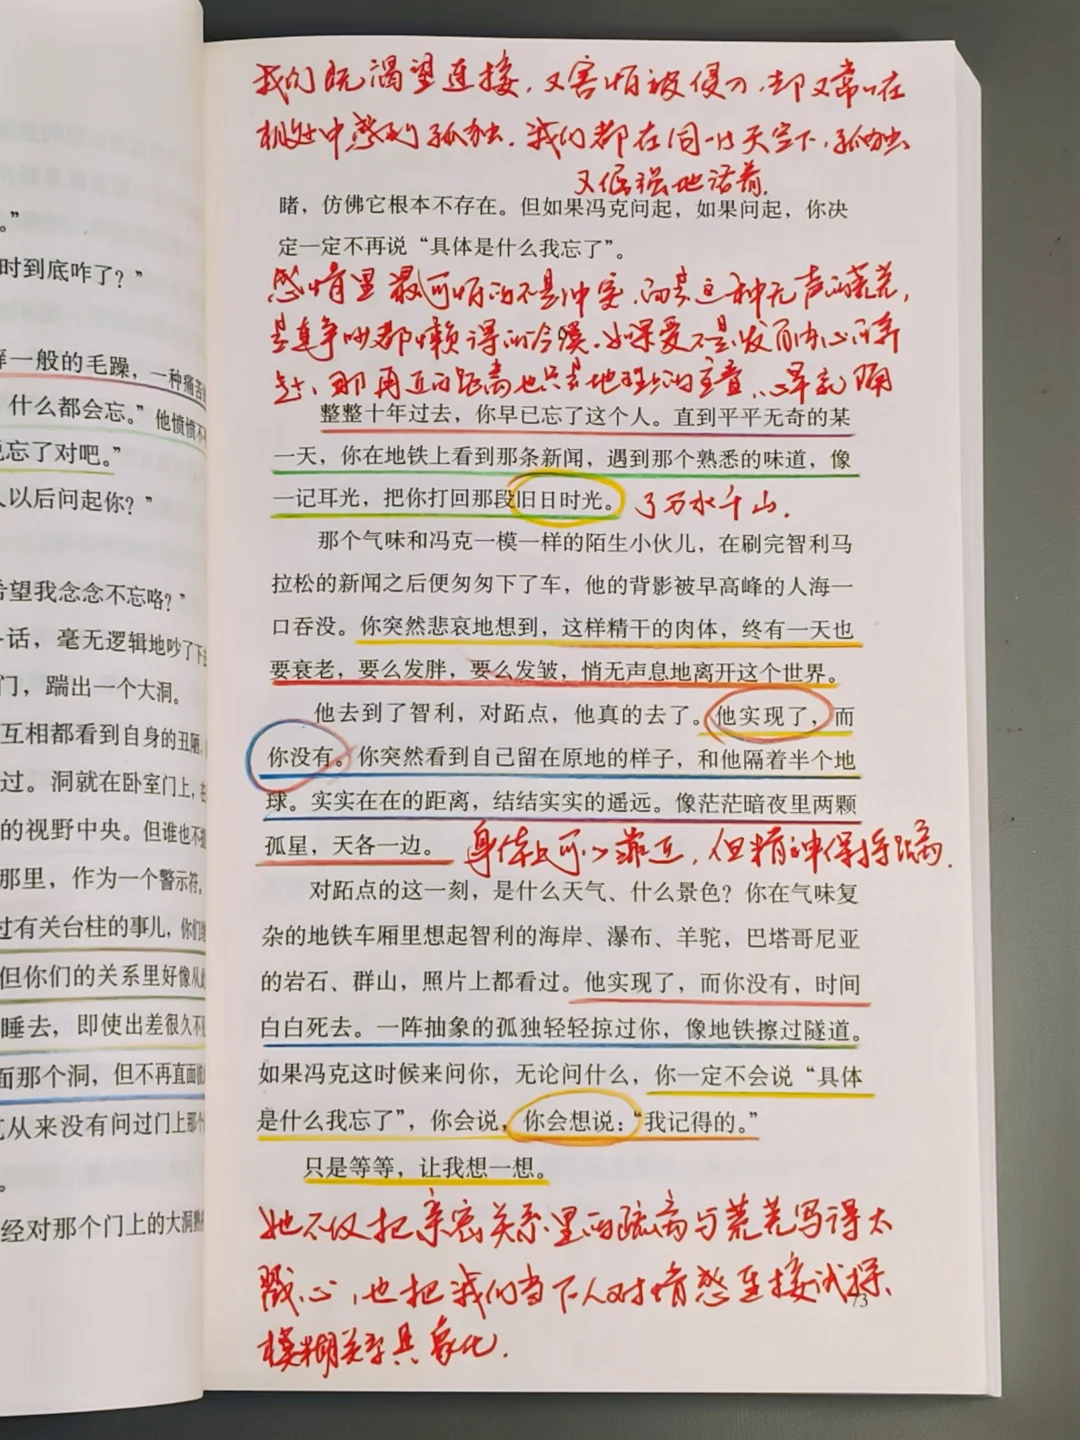 。”
时到底咋了？”
一般的毛躁，一种痛苦
什么都会忘。”他愤愤不
忘了对吧。”
人以后问起你？”
希望我念念不忘咯？”
话，毫无逻辑地吵了下
门，踹出一个大洞。
互相都看到自身的丑陋，
过。洞就在卧室门上，
的视野中央。但谁也不
那里，作为一个警示符，
过有关台柱的事儿，你们
但你们的关系里好像从
睡去，即使出差很久不
面那个洞，但不再直面
从来没有问过门上那个
。
经对那个门上的大洞
我们既渴望连接，又害怕被侵入，却又常常在
相处中感到孤独。我们都在同一片天空下，孤独
又倔强地活着。
睹，仿佛它根本不存在。但如果冯克问起，如果问起，你决
定一定不再说“具体是什么我忘了”。
感情里最可怕的不是冲突，而是这种无声的荒芜，
是连争吵都懒得的冷漠。如果爱不是发自内心的奔
赴，那再近的距离也只是地理上的字意，心早就隔
整整十年过去，你早已忘了这个人。直到平平无奇的某
一天，你在地铁上看到那条新闻，遇到那个熟悉的味道，像
一记耳光，把你打回那段旧日时光。
了万水千山。
那个气味和冯克一模一样的陌生小伙儿，在刷完智利马
拉松的新闻之后便匆匆下了车，他的背影被早高峰的人海一
口吞没。你突然悲哀地想到，这样精干的肉体，终有一天也
要衰老，要么发胖，要么发皱，悄无声息地离开这个世界。
他去到了智利，对跖点，他真的去了。他实现了，而
你没有。你突然看到自己留在原地的样子，和他隔着半个地
球。实实在在的距离，结结实实的遥远。像茫茫暗夜里两颗
孤星，天各一边。
身体上可以靠近，但精神保持距离。
对跖点的这一刻，是什么天气、什么景色？你在气味复
杂的地铁车厢里想起智利的海岸、瀑布、羊驼，巴塔哥尼亚
的岩石、群山，照片上都看过。他实现了，而你没有，时间
白白死去。一阵抽象的孤独轻轻掠过你，像地铁擦过隧道。
如果冯克这时候来问你，无论问什么，你一定不会说“具体
是什么我忘了”，你会说，你会想说：“我记得的。”
只是等等，让我想一想。
她不仅把亲密关系里的疏离与荒芜写得太
戳心，也把我们当下人对情感连接试探、
模糊关系具象化。
73